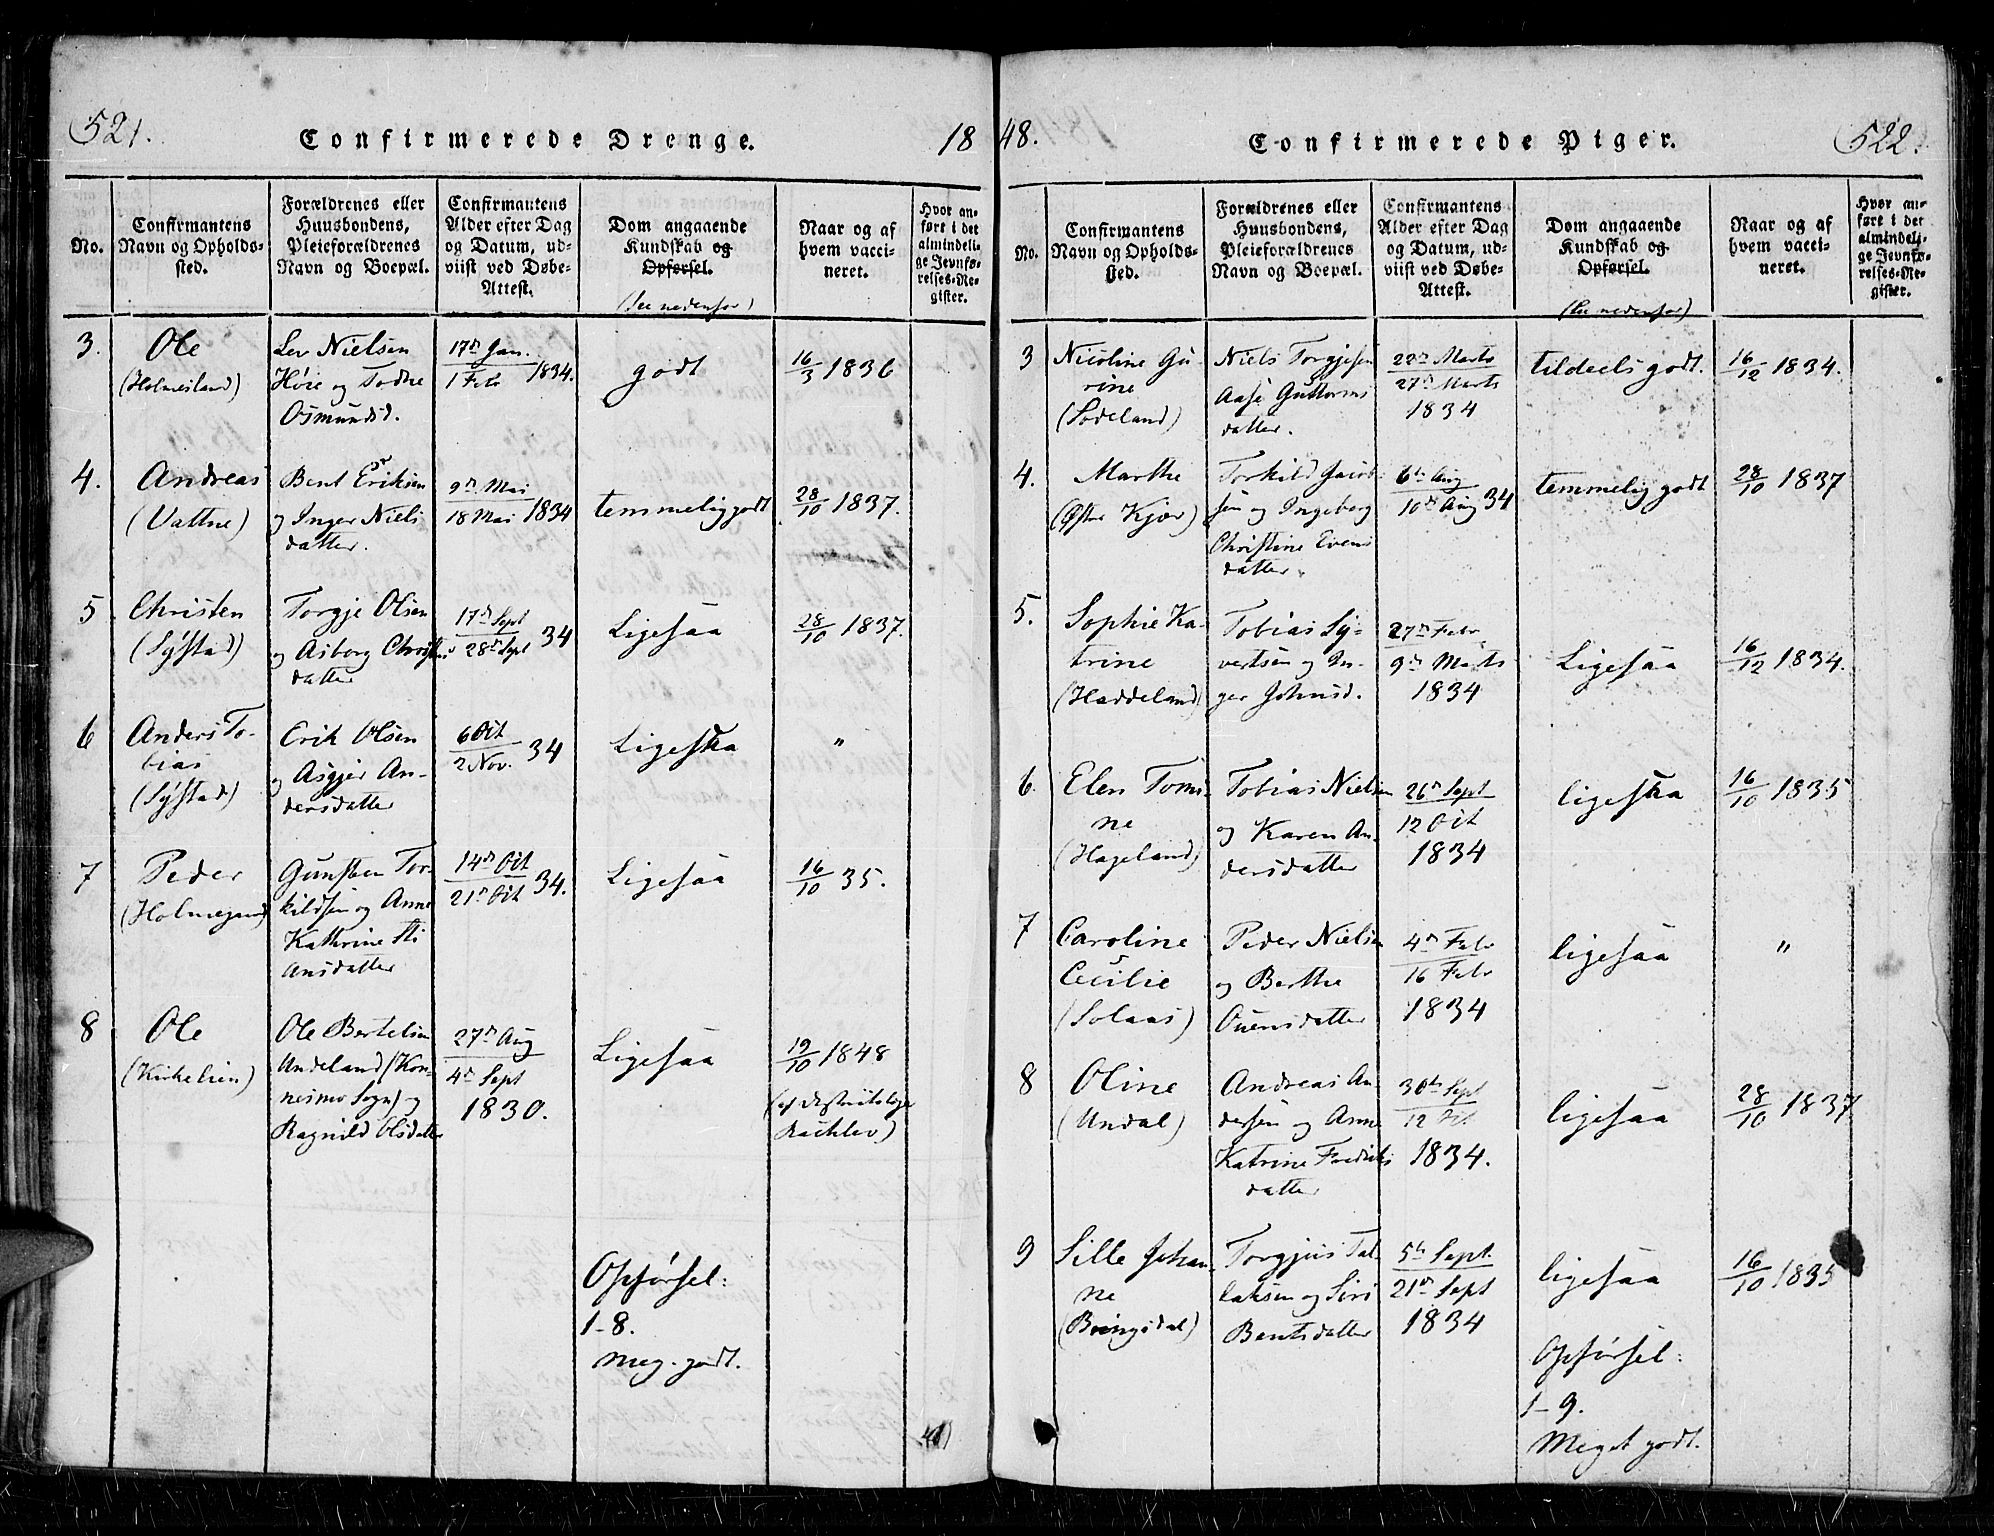 521.
Confirmerede Drenge.
18
No.
Confirmantens
Navn og Opholds-
sted.
Forældrenes eller
Huusbondens,
Pleieforældrenes
Navn og Boepæl.
Confirmantens
Alder efter Dag
og Datum, ud-
viist ved Døbe-
Attest.
Dom angaaende
Kundskab og
Opførsel.
(see nedenfor)
Naar og af
hvem vacci-
neret.
Hvor an-
ført i det
almindeli-
ge Jevnfø-
relses-Re-
gister.
3.
Ole
(Holmesland)
Lev Nielsen
Høie og Todne
Osmundsd.
17de Jan.
1 Feb 1834.
godt
16/3 1836
4.
Andreas
(Vattne)
Bent Eriksen
og Inger Niels
datter.
9de Mai
18 Mai 1834
temmelig godt
28/10 1837.
5
Christen
(Systad)
Torgje Olsen
og Asborg Christens
datter
17de Sept
28de Sept 34
Ligesaa
28/10 1837.
6
Anders To-
bias
(Systad)
Erik Olsen
og Asgjer An-
dersdatter
6 Oct
2 Nov. 34
Ligesaa
"
7
Peder
Gunsten Tor-
kildsen og Anne
Kathrine Sti
ansdatter
14de Oct
21de Oct 34.
Ligesaa
16/10 35.
8
Ole
(Kirkelien)
Ole Bertelsen
Undeland (Kon-
nesmo Sogn) og
Ragnild Olsdatter
27de Aug
4de Sept
1830.
Ligesaa
19/10 1848
(af Districtslæge
Opførsel:
1-8.
meg. godt.
48.
Confirmerede Piger.
522.
No.
Confirmantens
Navn og Opholds-
sted.
Forældrenes eller
Huusbondens,
Pleieforældrenes
Navn og Boepæl.
Confirmantens
Alder efter Dag
og Datum, ud-
viist ved Døbe-
Attest.
Dom angaaende
Kundskab og
Opførsel.
(see nedenfor)
Naar og af
hvem vacci-
neret.
Hvor an-
ført i det
almindeli-
ge Jevnfø-
relses-Re-
gister.
3
Nicoline Gu-
rine
(Sodeland)
Niels Torgjesen
Aase Guttorms
datter.
22de Marts
27de Marts
1834
tildeels godt.
16/12 1834.
4.
Marthe
(Østre Kjær)
Torkild Jacob-
sen og Ingeborg
Christine Evens
datter.
6te Aug
10de Aug 34
temmelig godt
28/10 1837
5.
Sophie Ka-
trine
(Haddeland)
Tobias Sy-
vertsen og In-
ger Johnsd.
27de Febr
9de Marts
1834
Ligesaa
16/12 1834.
6
Elen Tomi-
ne
(Hageland)
Tobias Nielsen
og Karen An-
dersdatter
26de Sept
12 Oct
1834
ligesaa
16/10 1835
7
Caroline
Cecilie
(Solaas)
Peder Nielsen
og Berthe
Ouensdatter
4de Febr
16 Febr
1834
ligesaa
"
8
Oline
(Undal)
Andreas An-
dersen og Anne
Katrine Fredriks
datter
30te Sept
12 Oct
1834.
ligesaa
28/10 1837.
9
Sille Johan-
ne
(Bringsdal)
Torgjuis Tal-
laksen og Siri
Bentsdatter
5te Sept
21de Sept
1834
ligesaa
16/10 1835
Opførsel:
1-9.
Meget godt.